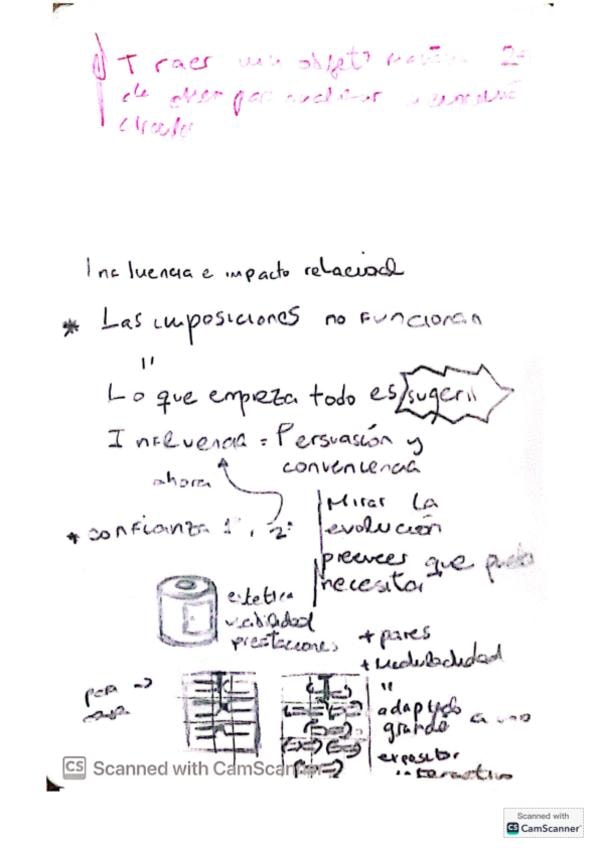 Traer un objeto
de
Influencia e impacto relacional
* Las imposiciones no funcionan
"
Lo que empieza todo es sugerir
Influencia = Persuasión y
conveniencia
ahora
* confianza 1º, 2º
Mirar la
evolución
preevees que puedo
necesitar
estetica
viabilidad
prestaciones
+ pares
+ Modularidad
"
adaptado
grande a uno
expositor
interactivo
CS Scanned with CamScanner
Scanned with
CS CamScanner